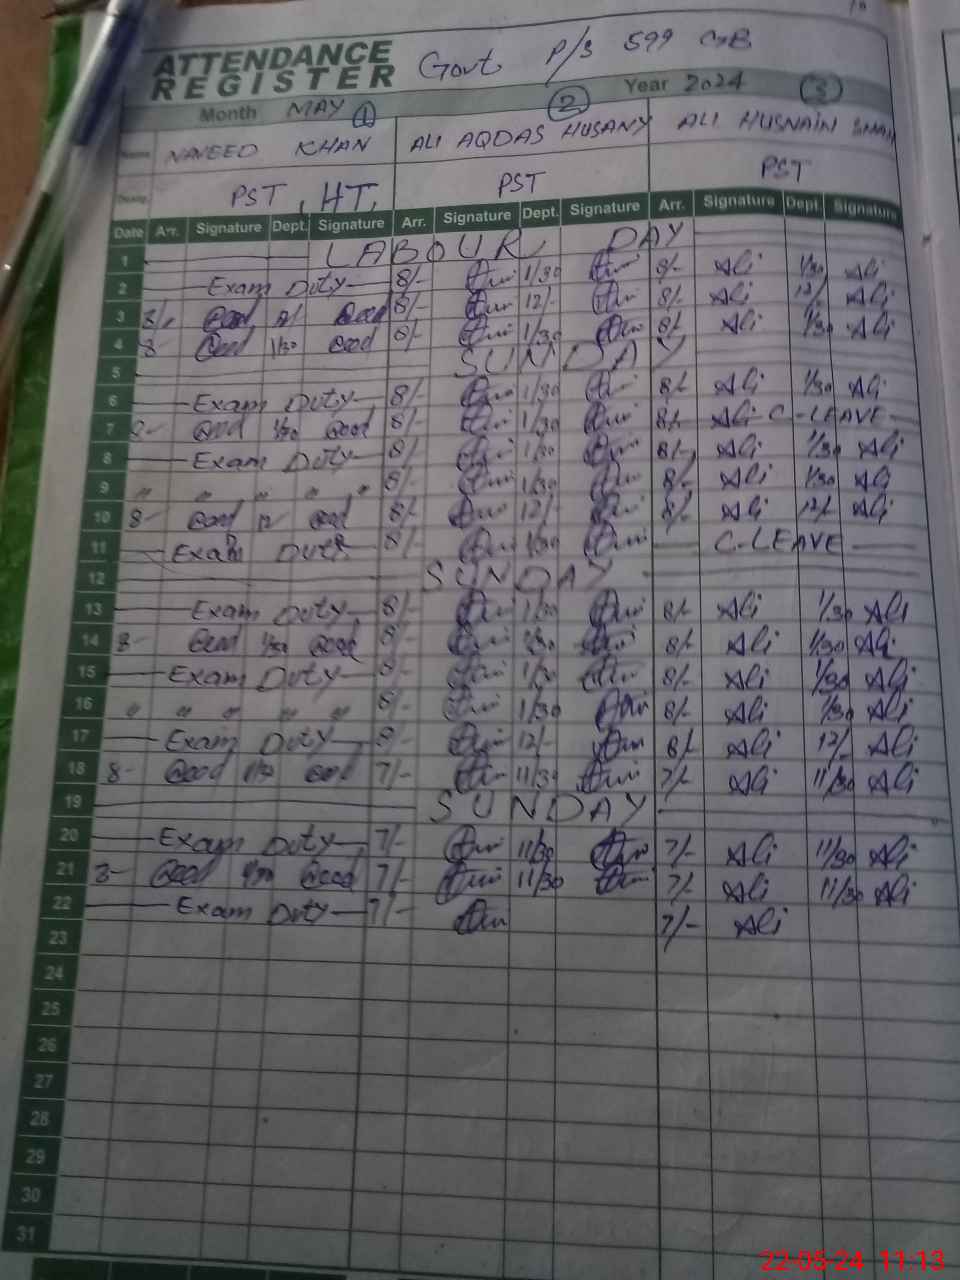 ATTENDANCE REGISTER Govt. P/S 599 GB
Month MAY Year 2024
1 2 3
Name NAVEED KHAN ALI AQDAS HUSANY ALI HUSNAIN SHAH
Desig. PST, HT, PST PST
Date Arr. Signature Dept. Signature Arr. Signature Dept. Signature Arr. Signature Dept. Signature
1 LABOUR DAY
2 Exam Duty 8/- 1/30 8/- Ali 1/30 Ali
3 8/- 8/- 12/- 8/- Ali 12/ Ali
4 8- 1/30 8/- 1/30 8/- Ali 1/30 Ali
5 SUNDAY
6 Exam Duty 8/- 1/30 8/- Ali 1/30 Ali
7 8- 1/30 8/- 1/30 8/- Ali C-LEAVE
8 Exam Duty 8/- 1/30 8/- Ali 1/30 Ali
9 " " " " " 8/- 1/30 8/- Ali 1/30 Ali
10 8- 12 8/- 12/- 8/- Ali 12/- Ali
11 Exam Duty 8/- 1/30 C-LEAVE
12 SUNDAY
13 Exam Duty 8/- 1/30 8/- Ali 1/30 Ali
14 8- 1/30 8/- 1/30 8/- Ali 1/30 Ali
15 Exam Duty 8/- 1/30 8/- Ali 1/30 Ali
16 " " " " " 8/- 1/30 8/- Ali 1/30 Ali
17 Exam Duty 8/- 12/- 8/- Ali 12/- Ali
18 8- 7/- 11/30 7/- Ali 11/30 Ali
19 SUNDAY
20 Exam Duty 7/- 11/30 7/- Ali 11/30 Ali
21 8- 7/- 11/30 7/- Ali 11/30 Ali
22 Exam Duty 7/- 7/- Ali
23
24
25
26
27
28
29
30
31
22-05-24 11:13